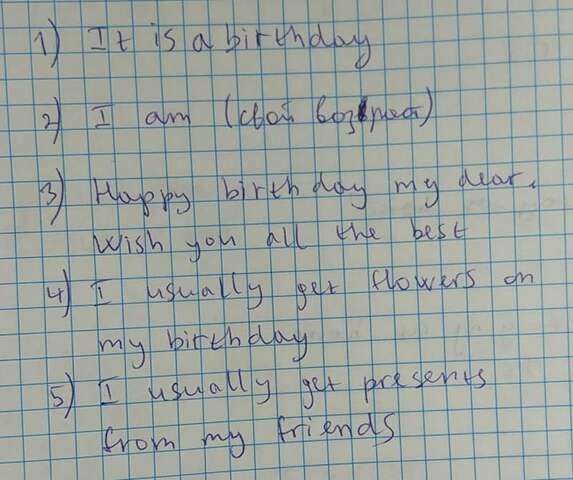 1) It is a birthday
2) I am (свой возраст)
3) Happy birthday my dear.
Wish you all the best
4) I usually get flowers on
my birthday
5) I usually get presents
from my friends